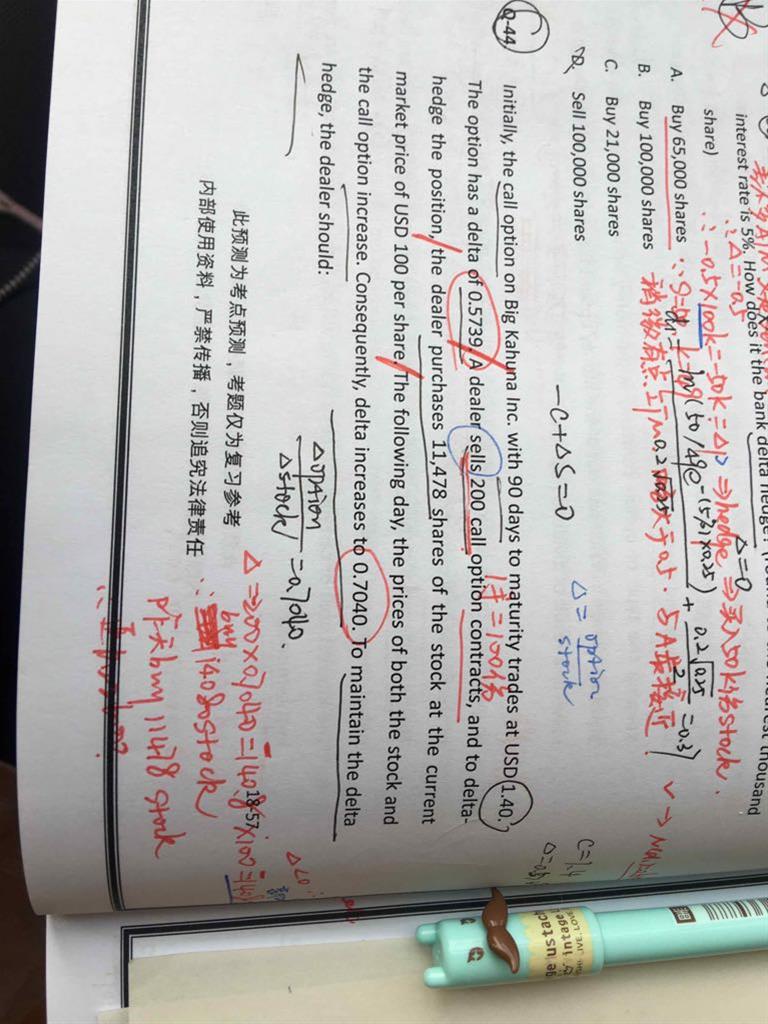 interest rate is 5%. How does it the bank delta hedge? (round to the nearest thousand
share)
A. Buy 65,000 shares
B. Buy 100,000 shares
C. Buy 21,000 shares
D. Sell 100,000 shares
∵Δ=-0.5
∴-0.5×100k=-50k=Δp⇒hedge⇒买入50k份stock.
Δ=0
稍微有点
-C+ΔS=0
Δ=option/stock
Q-44
Initially, the call option on Big Kahuna Inc. with 90 days to maturity trades at USD 1.40.
The option has a delta of 0.5739. A dealer sells 200 call option contracts, and to delta-
hedge the position, the dealer purchases 11,478 shares of the stock at the current
market price of USD 100 per share. The following day, the prices of both the stock and
the call option increase. Consequently, delta increases to 0.7040. To maintain the delta
hedge, the dealer should:
1手=100份
C=1.4
Δoption/Δstock=0.7040.
Δ=200×0.7040=140.8×100=
buy 14080 stock
昨天buy 11478 stock
18-57
此预测为考点预测，考题仅为复习参考
内部使用资料，严禁传播，否则追究法律责任